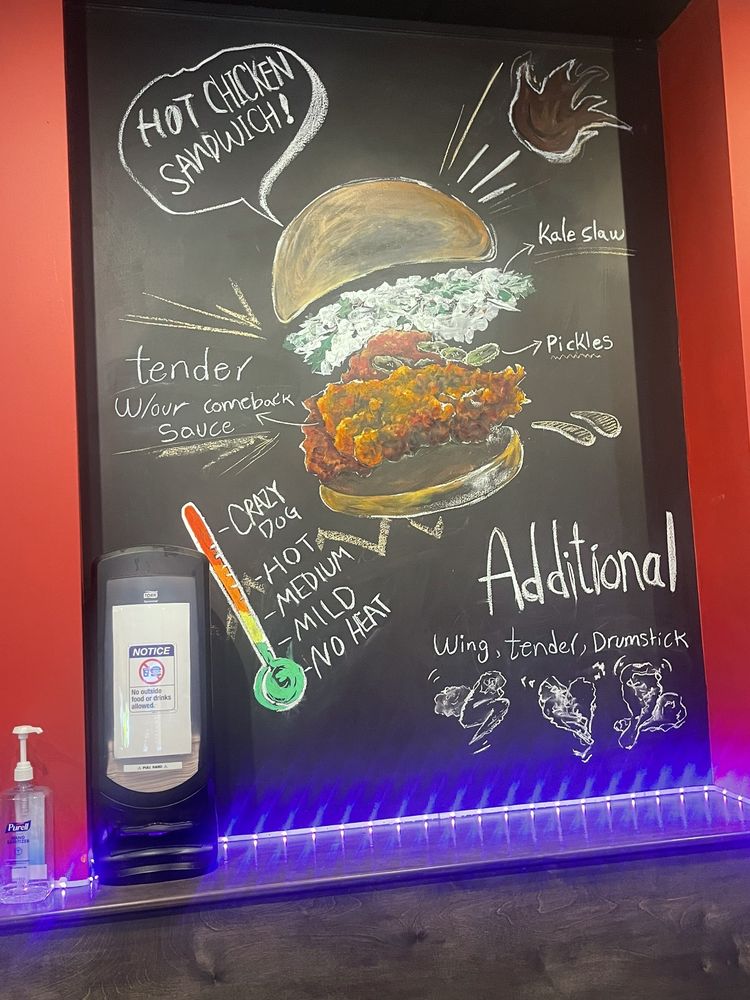 HOT CHICKEN
SANDWICH!
Kale slaw
Pickles
tender
W/our comeback
Sauce
CRAZY
DOG
HOT
MEDIUM
MILD
NO HEAT
Additional
Wing, tender, Drumstick
TORK
NOTICE
No outside
food or drinks
allowed.
PULL HARD
Purell